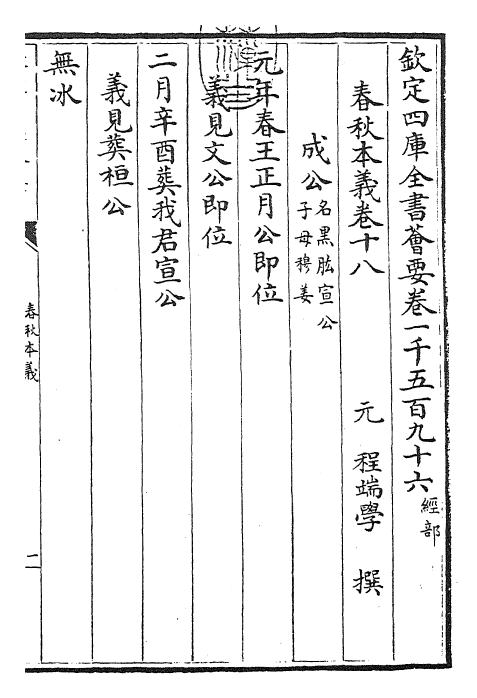 欽定四庫全書薈要卷一千五百九十六經部
春秋本義卷十八
元 程端學 撰
成公名黒肱宣公子母穆姜
元年春王正月公即位
義見文公即位
二月辛酉葬我君宣公
義見葬桓公
無冰
春秋本義
二